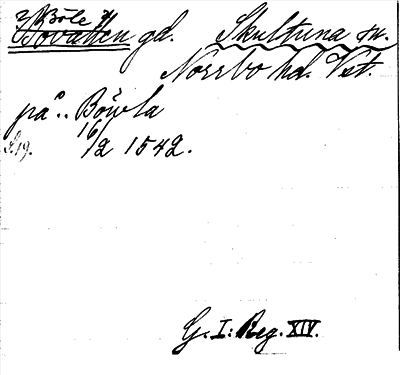 ? Böle ?
Bovallen gd. Skultuna sn.
Norrbo hd. Vst.
på.. Böwla
16/2 1542.
s. 19.
G. I: Reg. XIV.